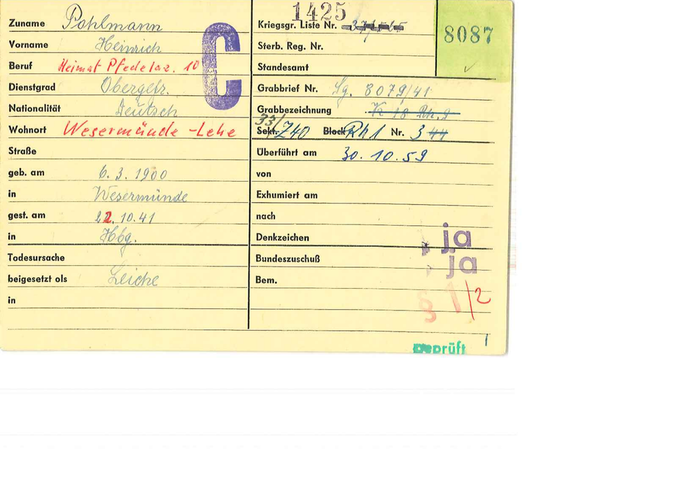 Zuname Pohlmann
Vorname Heinrich
Beruf Heimat Pfedelaz. 10
Dienstgrad Obergefr.
Nationalität Deutsch
Wohnort Wesermünde - Lehe
Straße
geb. am 6. 3. 1900
in Wesermünde
gest. am 22. 10. 41
in Hbg.
Todesursache
beigesetzt als Leiche
in
C
1425
Kriegsgr. Liste Nr.
Sterb. Reg. Nr.
Standesamt
8087
Grabbrief Nr. Sg. 8079/41
Grabbezeichnung
33/
Sekt. Z40 Block Rh1 Nr. 3 44
Überführt am 30. 10. 59
von
Exhumiert am
nach
Denkzeichen ja
Bundeszuschuß ja
Bem.
§ 1/2
geprüft